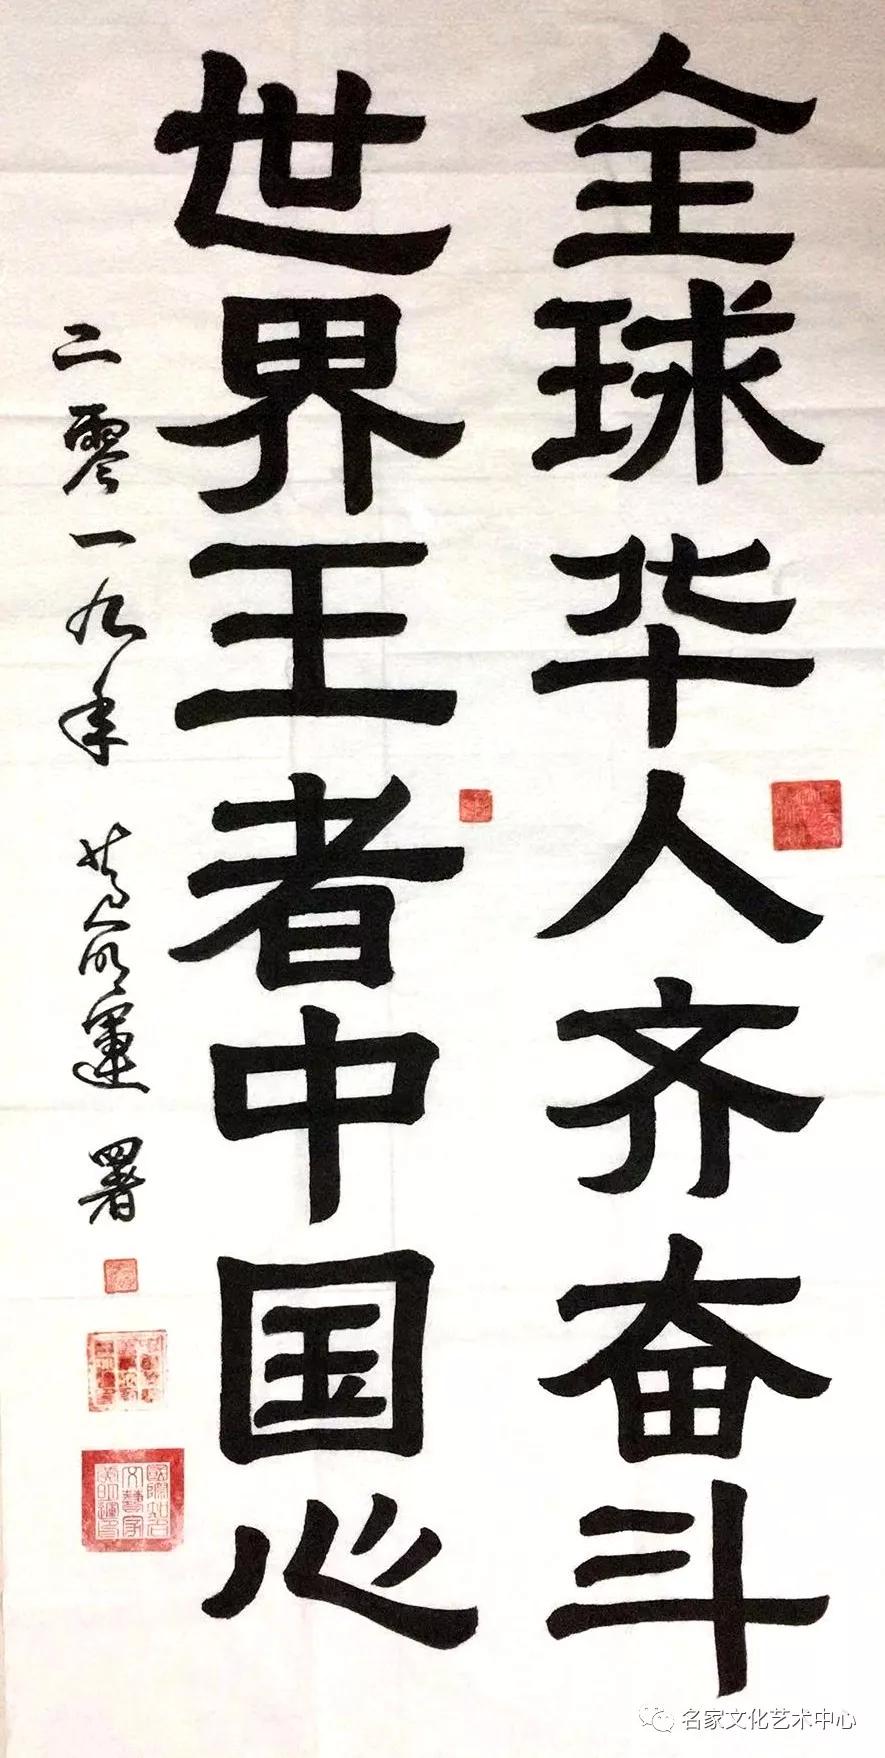 全球华人齐奋斗
世界王者中国心
二零一九年 黄明运 署
名家文化艺术中心